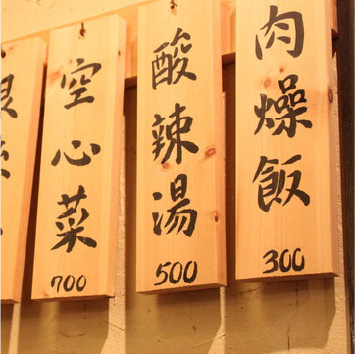 肉燥飯
300
酸辣湯
500
空心菜
700